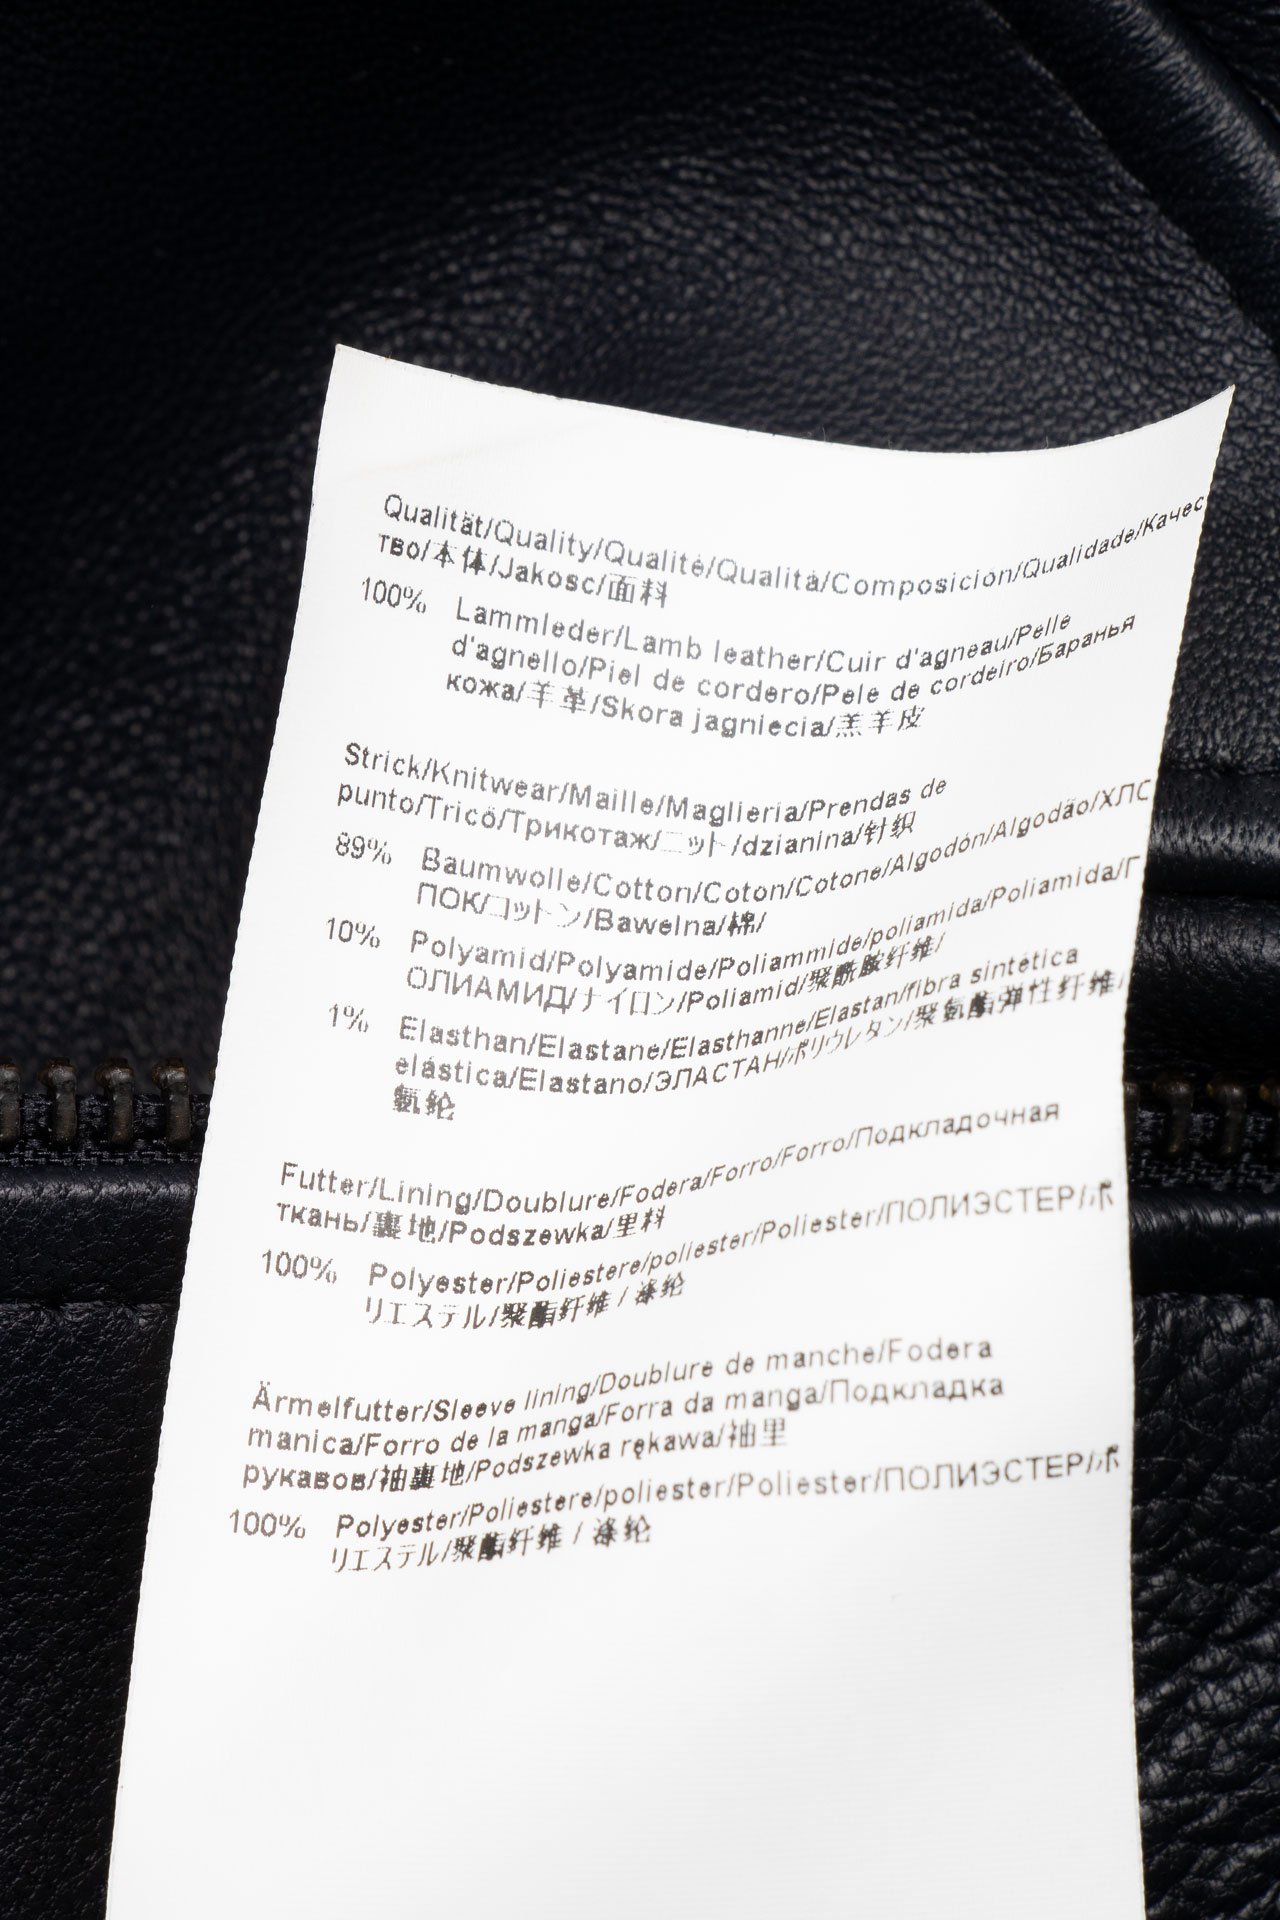 Qualität/Quality/Qualité/Qualità/Composición/Qualidade/Качес
тво/本体/Jakosc/面料
100% Lammleder/Lamb leather/Cuir d'agneau/Pelle
d'agnello/Piel de cordero/Pele de cordeiro/Баранья
кожа/羊革/Skora jagniecia/羔羊皮
Strick/Knitwear/Maille/Maglieria/Prendas de
punto/Tricô/Трикотаж/ニット/dzianina/针织
89% Baumwolle/Cotton/Coton/Cotone/Algodón/Algodão/ХЛО
ПОК/コットン/Bawelna/棉/
10% Polyamid/Polyamide/Poliammide/poliamida/Poliamida/П
ОЛИАМИД/ナイロン/Poliamid/聚酰胺纤维/
1% Elasthan/Elastane/Elasthanne/Elastan/fibra sintética
elástica/Elastano/ЭЛАСТАН/ポリウレタン/聚氨酯弹性纤维/
氨纶
Futter/Lining/Doublure/Fodera/Forro/Forro/Подкладочная
ткань/裏地/Podszewka/里料
100% Polyester/Poliestere/poliester/Poliester/ПОЛИЭСТЕР/ポ
リエステル/聚酯纤维 / 涤纶
Ärmelfutter/Sleeve lining/Doublure de manche/Fodera
manica/Forro de la manga/Forra da manga/Подкладка
рукавов/袖裏地/Podszewka rękawa/袖里
100% Polyester/Poliestere/poliester/Poliester/ПОЛИЭСТЕР/ポ
リエステル/聚酯纤维 / 涤纶